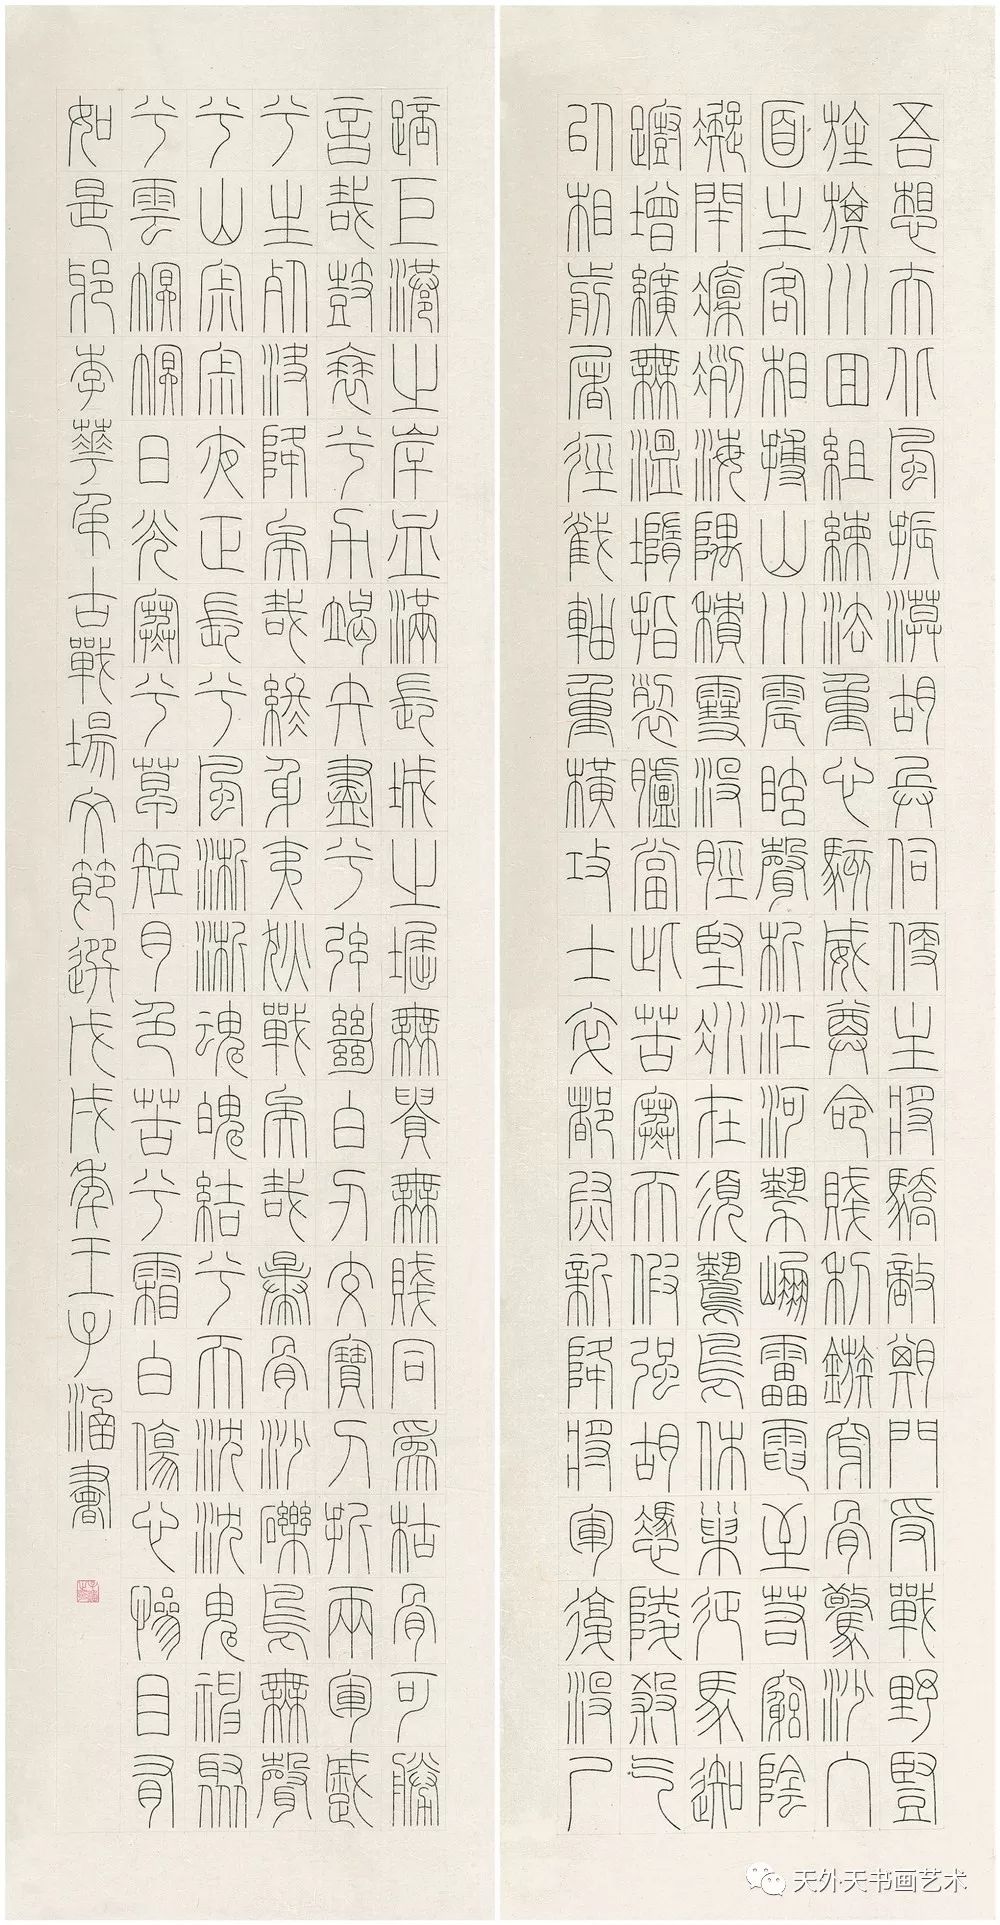 吾想夫北風振漠胡兵伺便主將驕敵期門受戰野豎
旌旗川回組練法重心駭威尊命賤利鏃穿骨驚沙入
面主客相搏山川震眩聲析江河勢崩雷電至若窮陰
凝閉凜冽海隅積雪没脛堅冰在須鷙鳥休巢征馬踟
躕繒纊無溫墮指裂膚當此苦寒天假強胡憑陵殺氣
以相翦屠徑截輜重橫攻士卒都尉新降將軍復没尸
踣巨港之岸血滿長城之窟無貴無賤同爲枯骨可勝
言哉鼓衰兮力竭矢盡兮弦絕白刃交寶刀折兩軍蹙
兮生死決降矣哉終身夷狄戰矣哉暴骨沙礫鳥無聲
兮山寂寂夜正長兮風淅淅魂魄結兮天沈沈鬼神聚
兮雲冪冪日光寒兮草短月色苦兮霜白傷心慘目有
如是邪李華弔古戰場文節選戊戌年王子涵書
天外天书画艺术